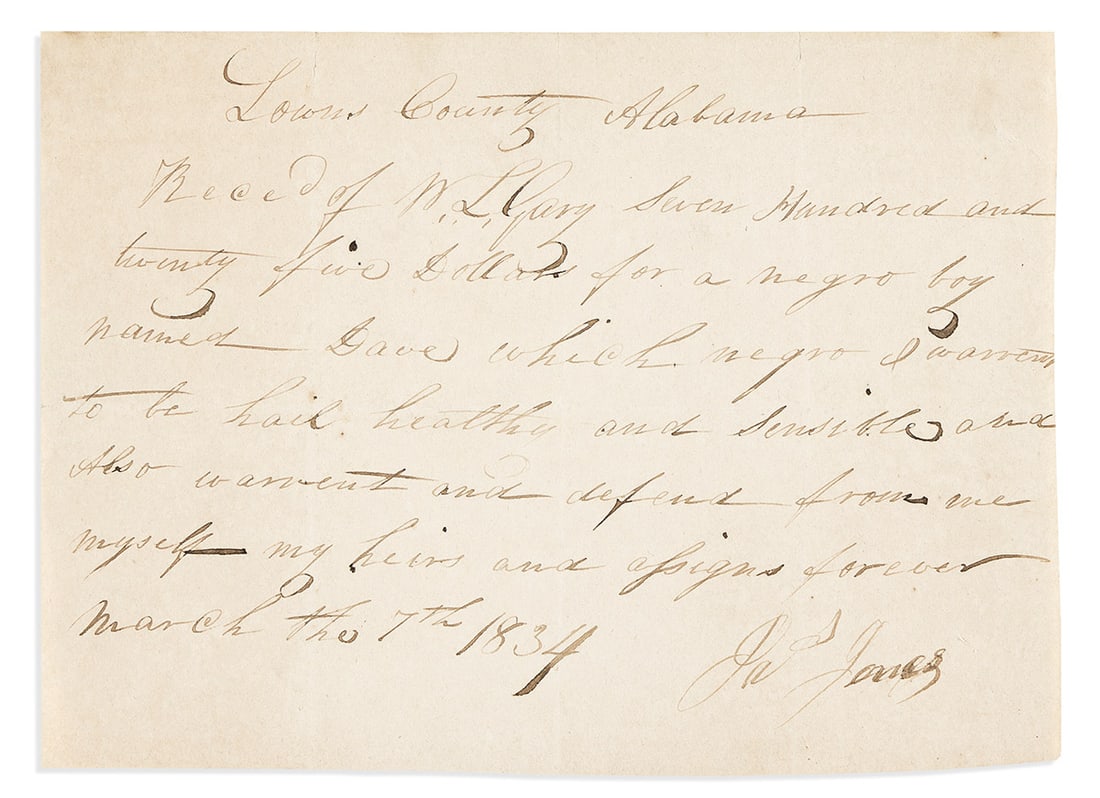 Lowns County Alabama
Reced of W. L. Gary Seven Hundred and
twenty five Dollars for a negro boy
named Dave which negro I warrent
to be hail healthy and sensible and
Also warrent and defend from me
myself my heirs and assigns forever
March the 7th 1834 Jno Jones